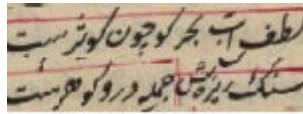 لطف آب بحر کو چون کوثرست
سنگ ریزه‌ش جمله در و گوهرست